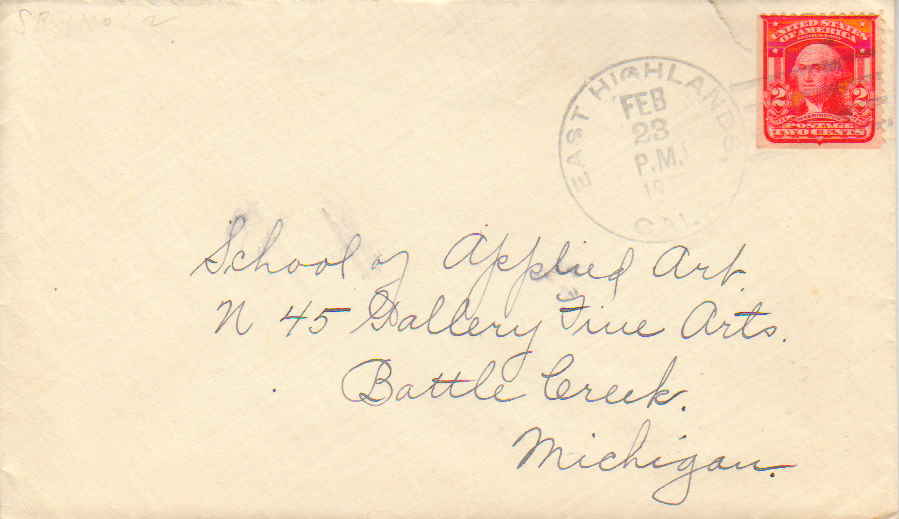 EAST HIGHLANDS
FEB
23
P.M.
CAL.
UNITED STATES
OF AMERICA
2 2
POSTAGE
TWO CENTS
School of Applied Art.
N 45 Gallery Fine Arts.
Battle Creek.
Michigan.